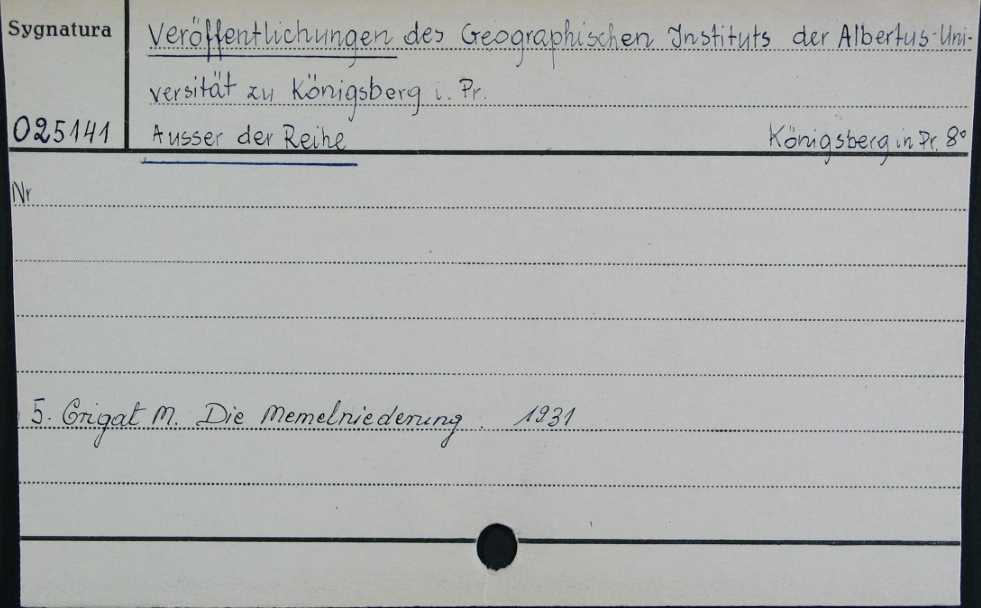 Sygnatura
Veröffentlichungen des Geographischen Instituts der Albertus-Uni-
versität zu Königsberg i. Pr.
025141
Ausser der Reihe
Königsberg in Pr. 8°
Nr
5. Grigat M. Die Memelniederung. 1931